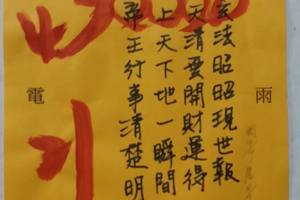 雨
玄法昭昭現世報
天清雲開財運得
上天下地一瞬間
王行事清楚明
電